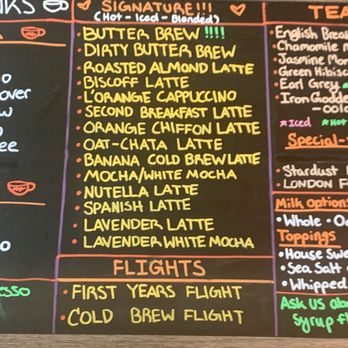 NKS
over
ee
esso
SIGNATURE!!!
(Hot - Iced - Blended)
• BUTTER BREW !!!!
• DIRTY BUTTER BREW
• ROASTED ALMOND LATTE
• BISCOFF LATTE
• L'ORANGE CAPPUCCINO
• SECOND BREAKFAST LATTE
• ORANGE CHIFFON LATTE
• OAT-CHATA LATTE
• BANANA COLD BREW LATTE
• MOCHA/WHITE MOCHA
• NUTELLA LATTE
• SPANISH LATTE
• LAVENDER LATTE
• LAVENDER WHITE MOCHA
FLIGHTS
• FIRST YEARS FLIGHT
• COLD BREW FLIGHT
TEA
• English Break
• Chamomile
• Jasmine Mon
• Green Hibisc
• Earl Grey
• Iron Godde
Iced
Hot
Special-
• Stardust
• LONDON F
Milk Options
• Whole • Oa
Toppings
• House Swe
• Sea Salt
• Whipped
Ask us abo
syrup fl